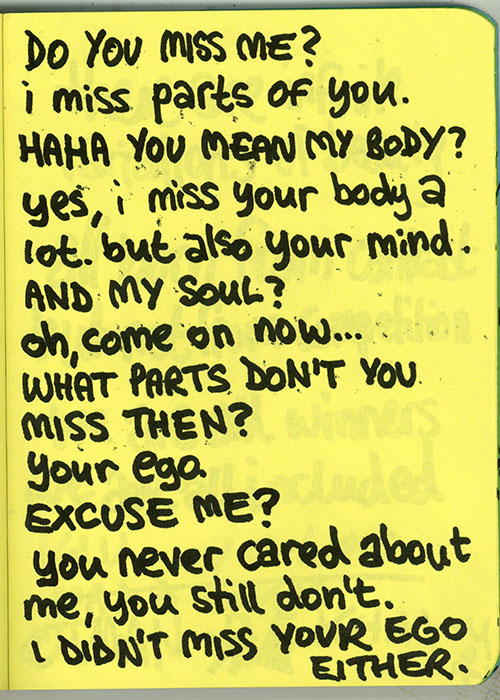 DO YOU MISS ME?
i miss parts of you.
HAHA YOU MEAN MY BODY?
yes, i miss your body a
lot. but also your mind.
AND MY SOUL?
oh, come on now...
WHAT PARTS DON'T YOU
MISS THEN?
your ego.
EXCUSE ME?
you never cared about
me, you still don't.
I DIDN'T MISS YOUR EGO
EITHER.